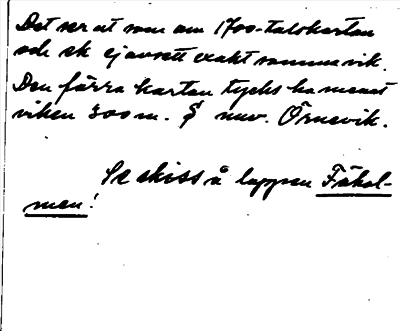 Det ser ut som om 1700-talskartan
och ek ej avsett exakt samma vik.
Den förra kartan tycks ha menat
viken 300 m. S nuv. Örnevik.
Se skiss å lappen Fåhol-
men!